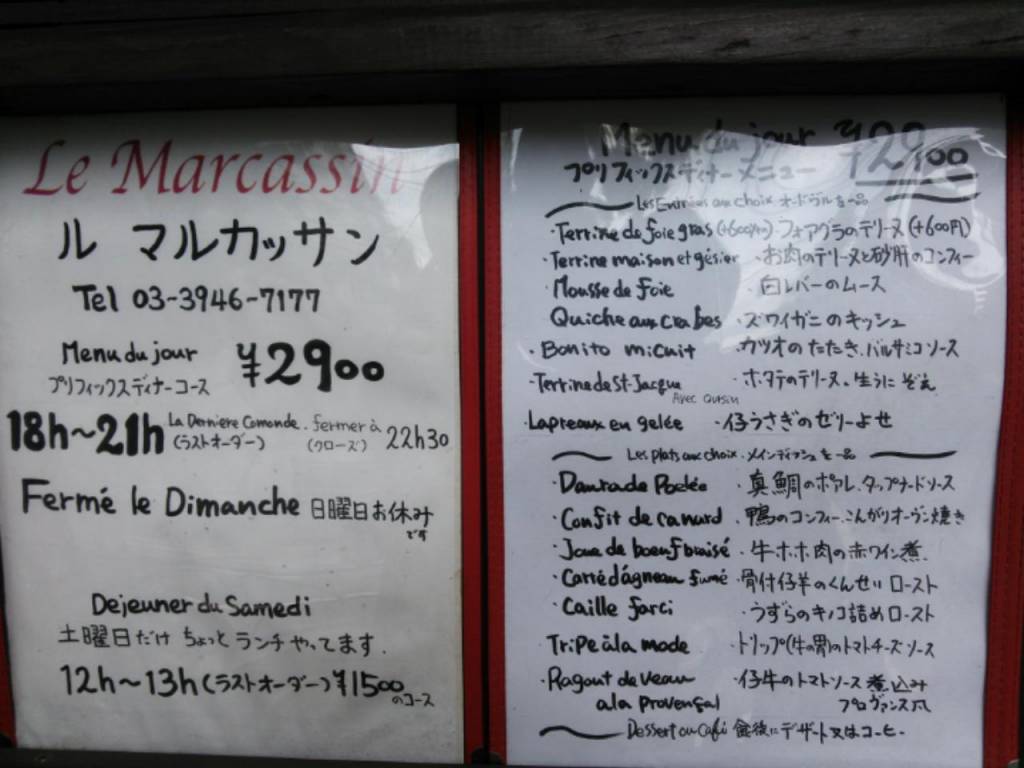 Le Marcassin
ル マルカッサン
Tel 03-3946-7177
Menu du jour ¥2900
プリフィックスディナーコース
18h~21h La Derniere Comande (ラストオーダー) . fermer à (クローズ) 22h30
Fermé le Dimanche 日曜日お休みです
Dejeuner du Samedi
土曜日だけ ちょっと ランチやってます.
12h~13h (ラストオーダー) ¥1500 のコース
Menu du jour ¥2900
プリフィックスディナーメニュー
Les Entrées au choix オードヴルを一品
・Terrine de foie gras (+600yen)・フォアグラのテリーヌ (+600円)
・Terrine maison et gésier ・お肉のテリーヌと砂肝のコンフィー
・Mousse de foie ・白レバーのムース
Quiche aux crabes ・ズワイガニのキッシュ
・Bonito micuit ・カツオのたたき、バルサミコソース
・Terrine de St-Jacque Avec Oursin ・ホタテのテリーヌ、生うに ぞえ
・Lapreaux en gelée ・仔うさぎのゼリーよせ
Les plats au choix . メインディッシュを一品
・Daurade Poelée ・真鯛のポアレ、タップナードソース
・Confit de canard ・鴨のコンフィー、こんがりオーヴン焼き
・Joue de boeuf braisé ・牛ホホ肉の赤ワイン煮
・Carré d'agneau fumé ・骨付仔羊のくんせいロースト
・Caille farci ・うずらのキノコ詰めロースト
Tripe à la mode ・トリップ(牛の胃)のトマトチーズソース
・Ragout de veau a la provençal ・仔牛のトマトソース煮込み プロヴァンス風
Dessert ou Café 食後にデザート又はコーヒー